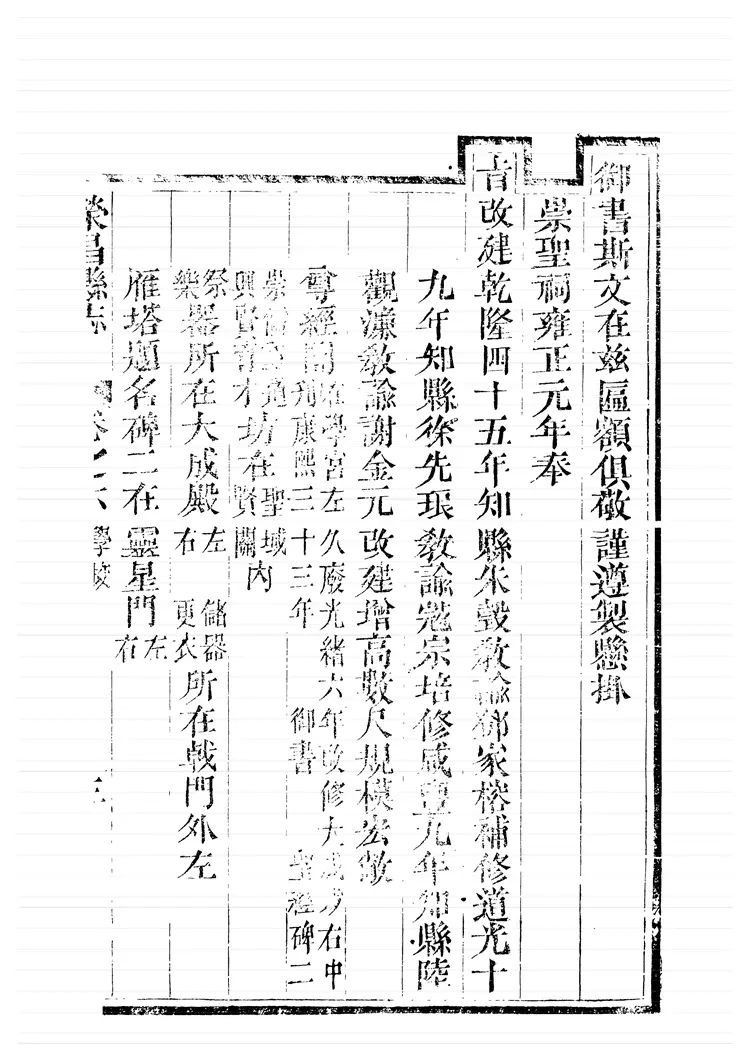 御書斯文在兹匾額俱敬謹遵製懸掛
崇聖祠雍正元年奉
旨改建乾隆四十五年知縣朱瑴教諭鄧家榕補修道光十
九年知縣徐先琅教諭寇宗培修咸豐九年知縣陸
觀濂教諭謝金元改建增高數尺規模宏敞
尊經閣在學宮左久廢光緒六年改修大成
右中刋康熙三十三年御書聖經碑二
坊在聖域賢關內
興賢育才
祭樂器所在大成殿左右儲器更衣所在戟門外左
雁塔題名碑二在靈星門左右
榮昌縣志
卷之六 學校
三